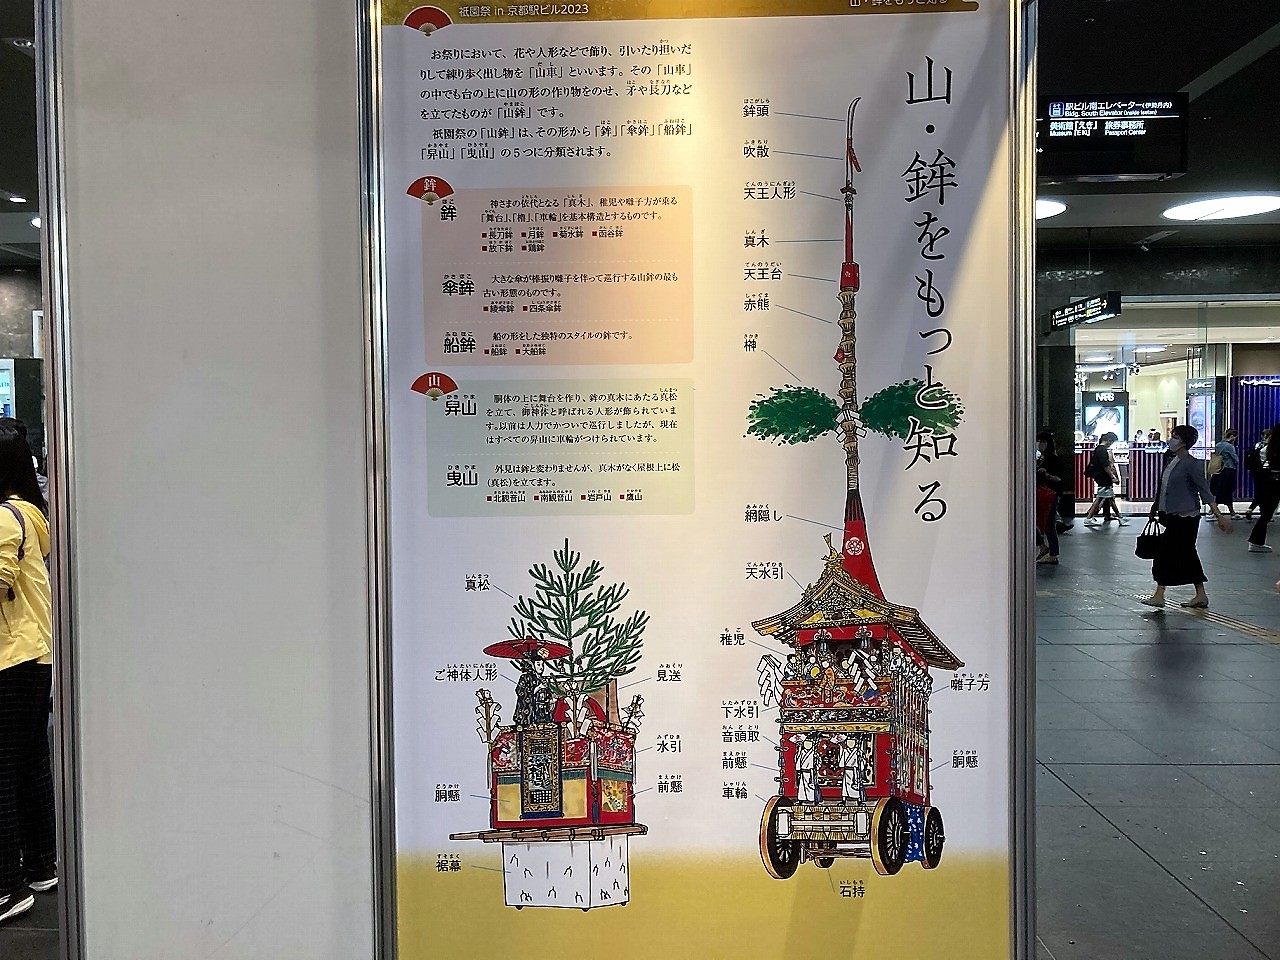 祇園祭 in 京都駅ビル2023
山・鉾をもっと知る
山・鉾をもっと知る
お祭りにおいて、花や人形などで飾り、引いたり担いだ
りして練り歩く出し物を「山車」といいます。その「山車」
の中でも台の上に山の形の作り物をのせ、矛や長刀など
を立てたものが「山鉾」です。
祇園祭の「山鉾」は、その形から「鉾」「傘鉾」「船鉾」
「舁山」「曳山」の5つに分類されます。
鉾
鉾
神さまの依代となる「真木」、稚児や囃子方が乗る
「舞台」、「櫓」、「車輪」を基本構造とするものです。
■長刀鉾 ■月鉾 ■菊水鉾 ■函谷鉾
■放下鉾 ■鶏鉾
傘鉾
大きな傘が棒振り囃子を伴って巡行する山鉾の最も
古い形態のものです。
■綾傘鉾 ■四条傘鉾
船鉾
船の形をした独特のスタイルの鉾です。
■船鉾 ■大船鉾
山
舁山
胴体の上に舞台を作り、鉾の真木にあたる真松
を立て、御神体と呼ばれる人形が飾られていま
す。以前は人力でかついで巡行しましたが、現在
はすべての舁山に車輪がつけられています。
曳山
外見は鉾と変わりませんが、真木がなく屋根上に松
(真松)を立てます。
■北観音山 ■南観音山 ■岩戸山 ■鷹山
真松
ご神体人形
見送
水引
前懸
胴懸
裾幕
鉾頭
吹散
天王人形
真木
天王台
赤熊
榊
網隠し
天水引
稚児
囃子方
下水引
音頭取
前懸
胴懸
車輪
石持
駅ビル南エレベーター(伊勢丹内)
Bldg. South Elevator (Inside Isetan)
美術館「えき」 旅券事務所
Museum「EKI」 Passport Center
NARS
MAC